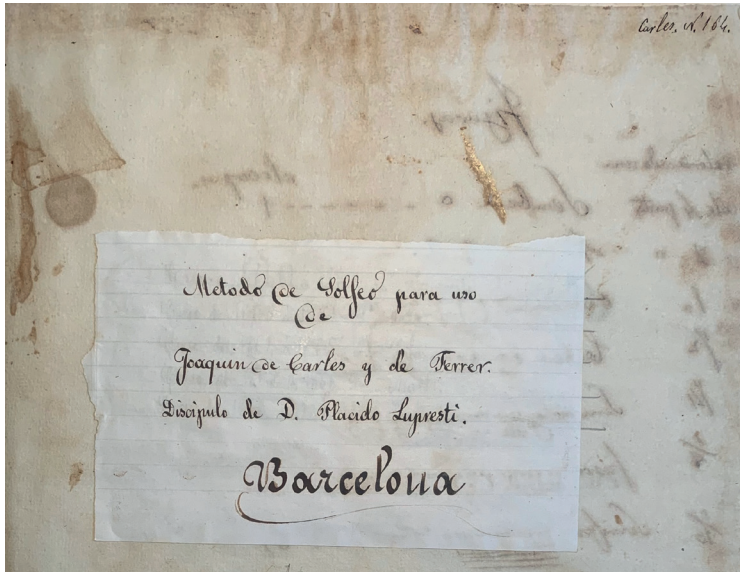 Carles. N. 164.
Metodo de Solfeo para uso
de
Joaquin de Carles y de Ferrer.
Discipulo de D. Placido Lupresti.
Barcelona